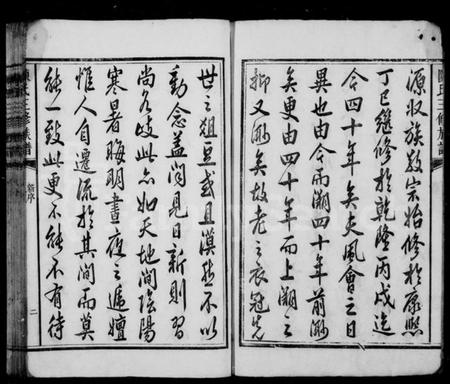 陳氏三修族譜
源収族敦宗始修於康熙
丁巳繼修於乾隆丙戌迄
今四十年矣夫風會之日
異也由今而溯四十年前渺
矣更由四十年而上溯之
抑又渺矣故老之衣冠先
世之俎豆或且漠然不以
動念蓋聞見日新則習
尚各岐此亦如天地間陰陽
寒暑晦明晝夜之遞嬗
惟人自遷流於其間而莫
能一致此更不能不有待
陳氏三修族譜
新序
二